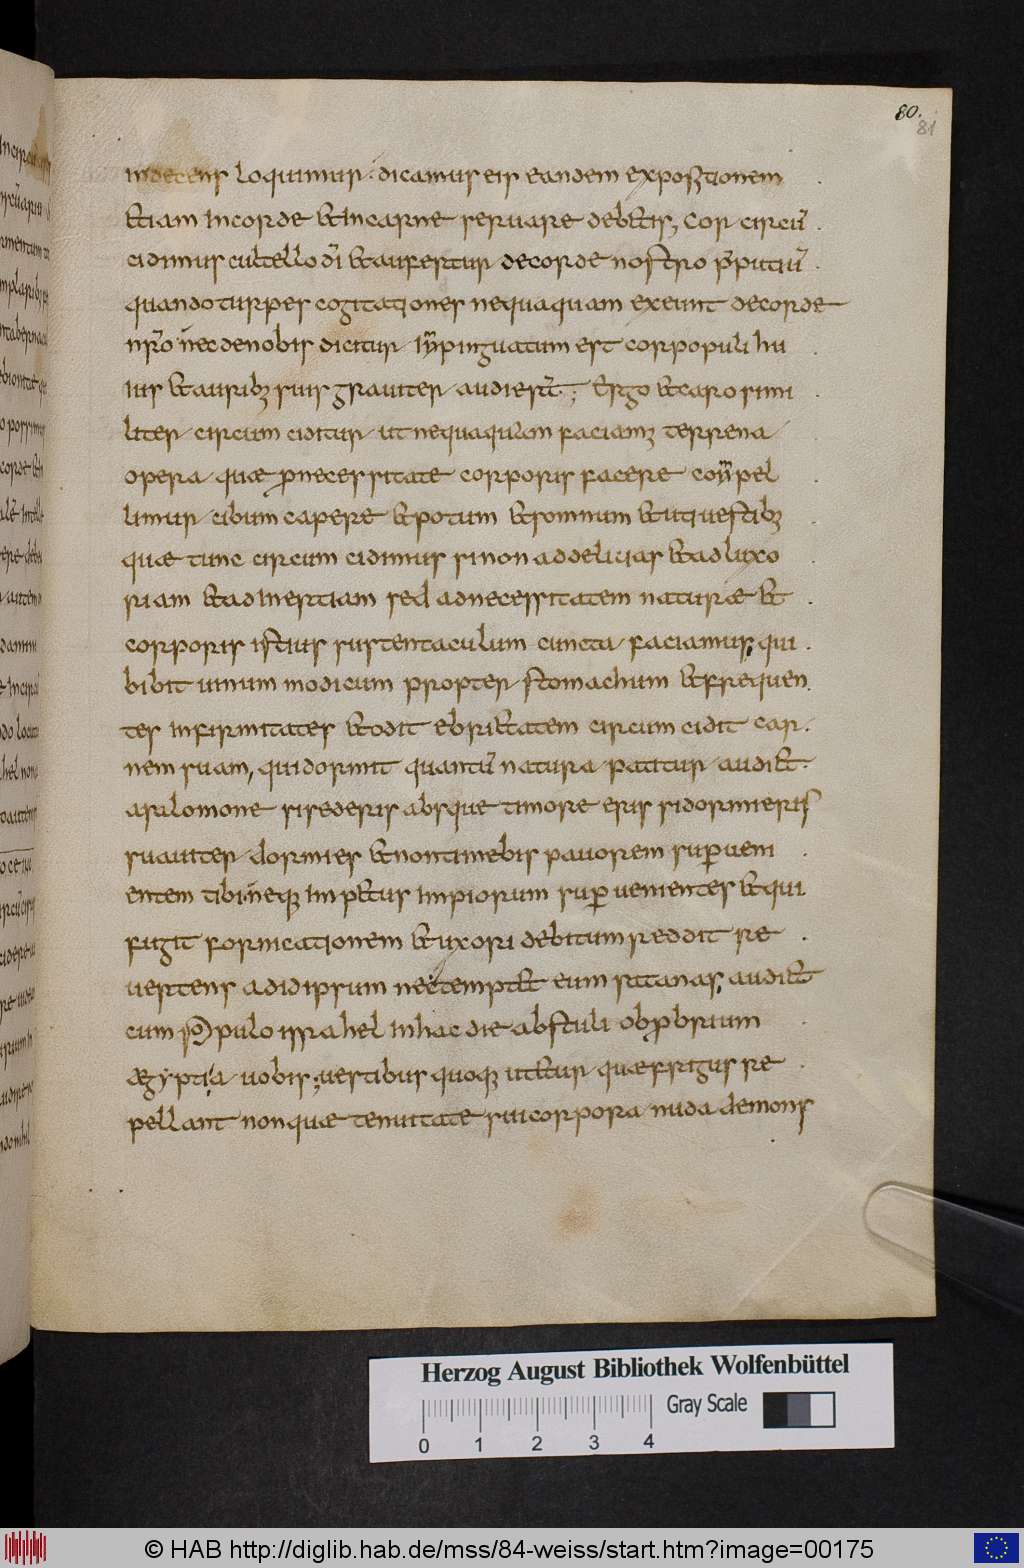 80.
81
indecens loquimur· dicamus eis eandem expositionem
etiam incorde etincarne seruare debetis, Cor circū
cidimus cultello dī etaufertur decorde nostro p̄putiū
quandoturpes cogitationes nequaquam exeunt decorde
nr̄o nec denobis dicitur inpinguatum est corpopuli hu
ius etauribꝫ suis grauiter audiert̄; Ergo etcaro simi
liter circum ciditur ut nequaquam faciamꝫ terrena
opera quae pronecessitate corporis facere conpel
limur cibum capere etpotum etsomnum etuti uestibꝫ
quae tunc circum cidimus sinon addelicias etadluxo
riam etadinertiam sed adnecessitatem naturae et
corporis istius sustentaculum cuncta faciamus; qui
bibit uinum modicum propter stomachum etfrequen
tes infirmitates etodit ebrietatem circum cidit car
nem suam, quidormit quantū natura patitur audiet
asalomone sisederis absque timore eris sidormieris
suauiter dormies etnontimebis pauorem sup̱ueni
entem tibi neqꝫ impetus impiorum sup̱ uenientes etqui
fugit fornicationem etuxori debitum reddit re
uertens adidipsum nectemptet eum satanas, audiet
cum populo israhel inhac die abstuli obprobrium
aegyptia uobis; uestibus quoqꝫ utetur quaefrigus re
pellant nonquae tenuitate sui corpora nuda demons
Herzog August Bibliothek Wolfenbüttel
Gray Scale
0 1 2 3 4
© HAB http://diglib.hab.de/mss/84-weiss/start.htm?image=00175